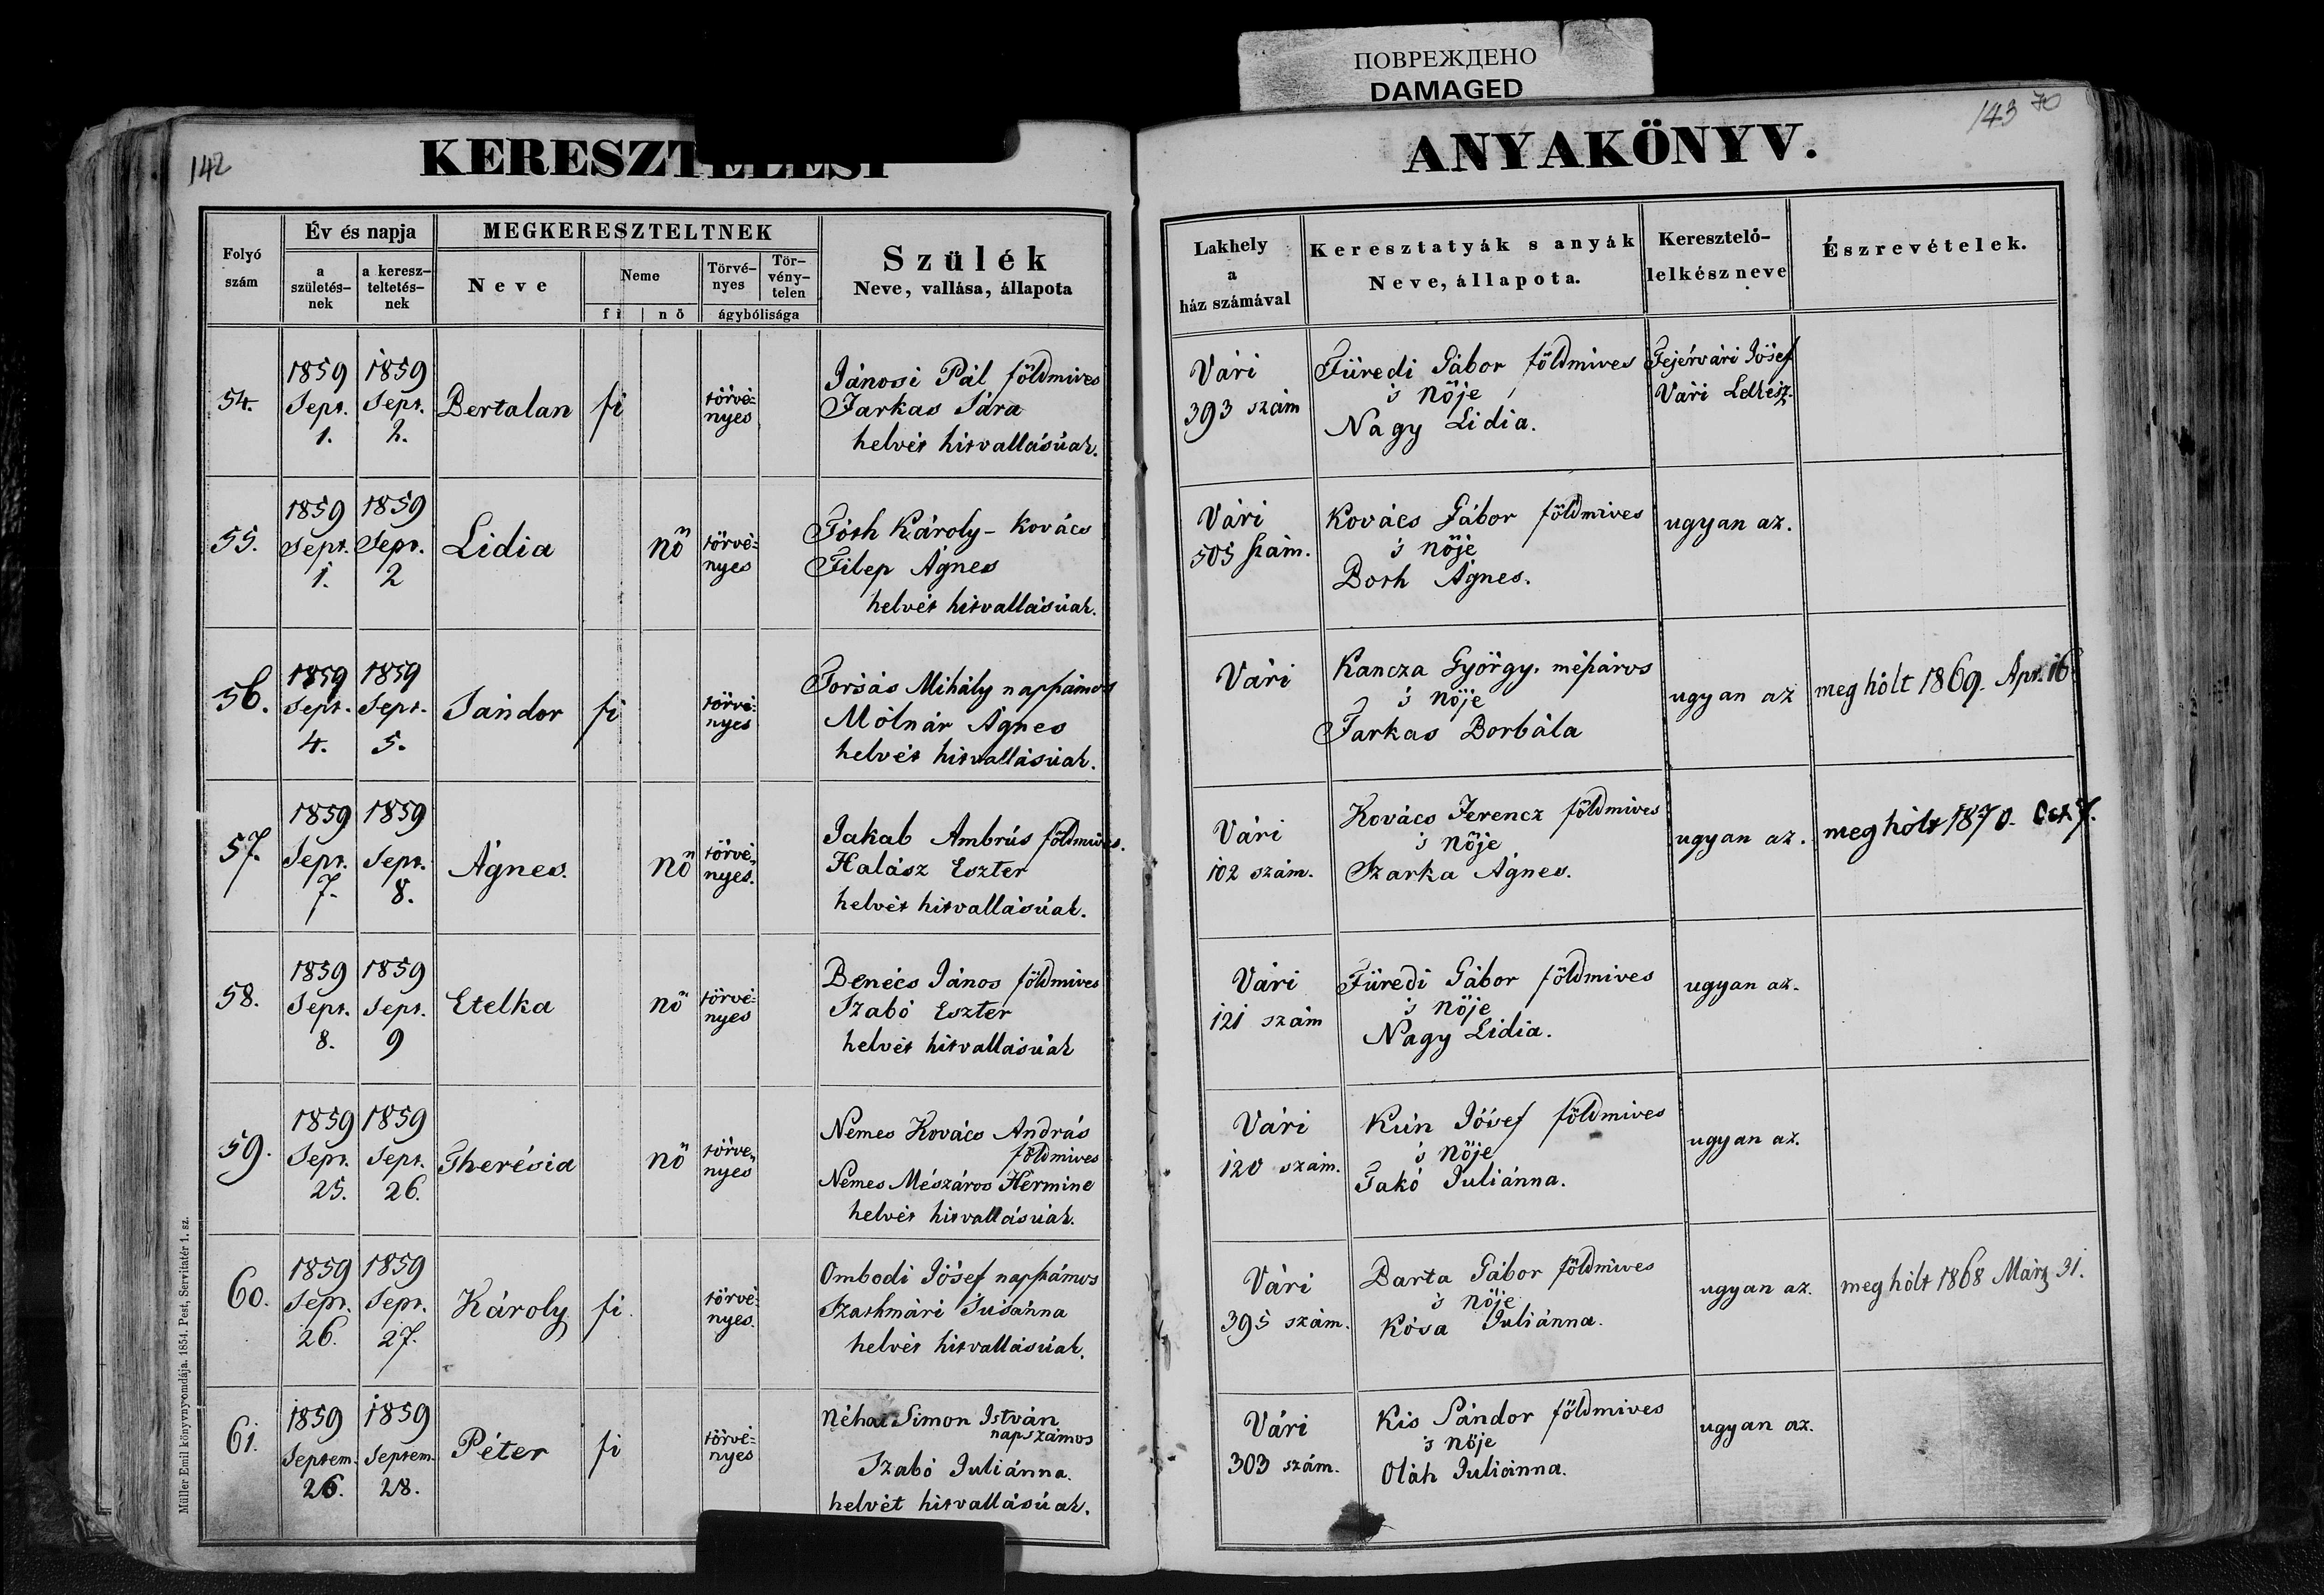 ПОВРЕЖДЕНО
DAMAGED
142
KERESZTELÉSI
Folyó szám
Év és napja
a születés-nek
a keresz-teltetés-nek
MEGKERESZTELTNEK
Neve
Neme
fi
nő
Törvé-nyes
Tör-vény-telen
ágybólisága
Szülék
Neve, vallása, állapota
54.
1859 Sept. 1.
1859 Sept. 2.
Bertalan
fi
törvé-nyes
Jánosi Pál földmives
Farkas Sára
helvét hitvallásúak.
55.
1859 Sept. 1.
1859 Sept. 2
Lidia
nö
törvé-nyes
Tóth Károly - kovács
Filep Ágnes
helvét hitvallásúak.
56.
1859 Sept. 4.
1859 Sept. 5.
Sándor
fi
törvé-nyes
Mihály napszámos
Mólnár Ágnes
helvét hitvallásúak.
57.
1859 Sept. 7.
1859 Sept. 8.
Ágnes.
nö
törvé-nyes.
Jakab Ambrús földmives.
Halász Eszter
helvét hitvallásúak.
58.
1859 Sept. 8.
1859 Sept. 9
Etelka
nö
törvé-nyes
Benécs János földmives
Szabó Eszter
helvét hitvallásúak
59.
1859 Sept. 25.
1859 Sept. 26.
Therésia
nö
törvé-nyes
Nemes Kovács András
földmives
Nemes Mészáros Hermine
helvét hitvallásúak.
60.
1859 Sept. 26.
1859 Sept. 27.
Károly
fi.
törvé-nyes.
Ombodi Jósef napszámos
Szathmári Susánna
helvét hitvallásúak.
61.
1859 Septem. 26.
1859 Septem. 28.
Péter
fi
törvé-nyes
Néhai Simon István
napszámos
Szabó Juliánna.
helvét hitvallásúak.
Müller Emil könyvnyomdája. 1854. Pest, Servitatér 1. sz.
143 70
ANYAKÖNYV.
Lakhely
a
ház számával
Keresztatyák s anyák
Neve, állapota.
Keresztelő-
lelkész neve
Észrevételek.
Vári
393 szám
Füredi Gábor földmives
's nöje
Nagy Lidia.
Fejérvári Jósef
Vári Lelkész.
Vári
505 szám.
Kovács Gábor földmives
's nöje
Both Ágnes.
ugyan az.
Vári
Kancza György.
's nöje
Farkas Borbála
ugyan az
meg hólt 1869. Apr. 16
Vári
102 szám.
Kovács Ferencz földmives
's nöje
Szarka Ágnes.
ugyan az.
meg hólt 1870. Oct 7.
Vári
121 szám
Füredi Gábor földmives
's nöje
Nagy Lidia.
ugyan az.
Vári
120 szám.
Kún Jósef földmives
's nöje
Takó Juliánna.
ugyan az.
Vári
395 szám.
Barta Gábor földmives
's nöje
Kósa Juliánna.
ugyan az.
meg hólt 1868 Márz 31.
Vári
303 szám.
Kis Sándor földmives
's nöje
Oláh Juliánna.
ugyan az.